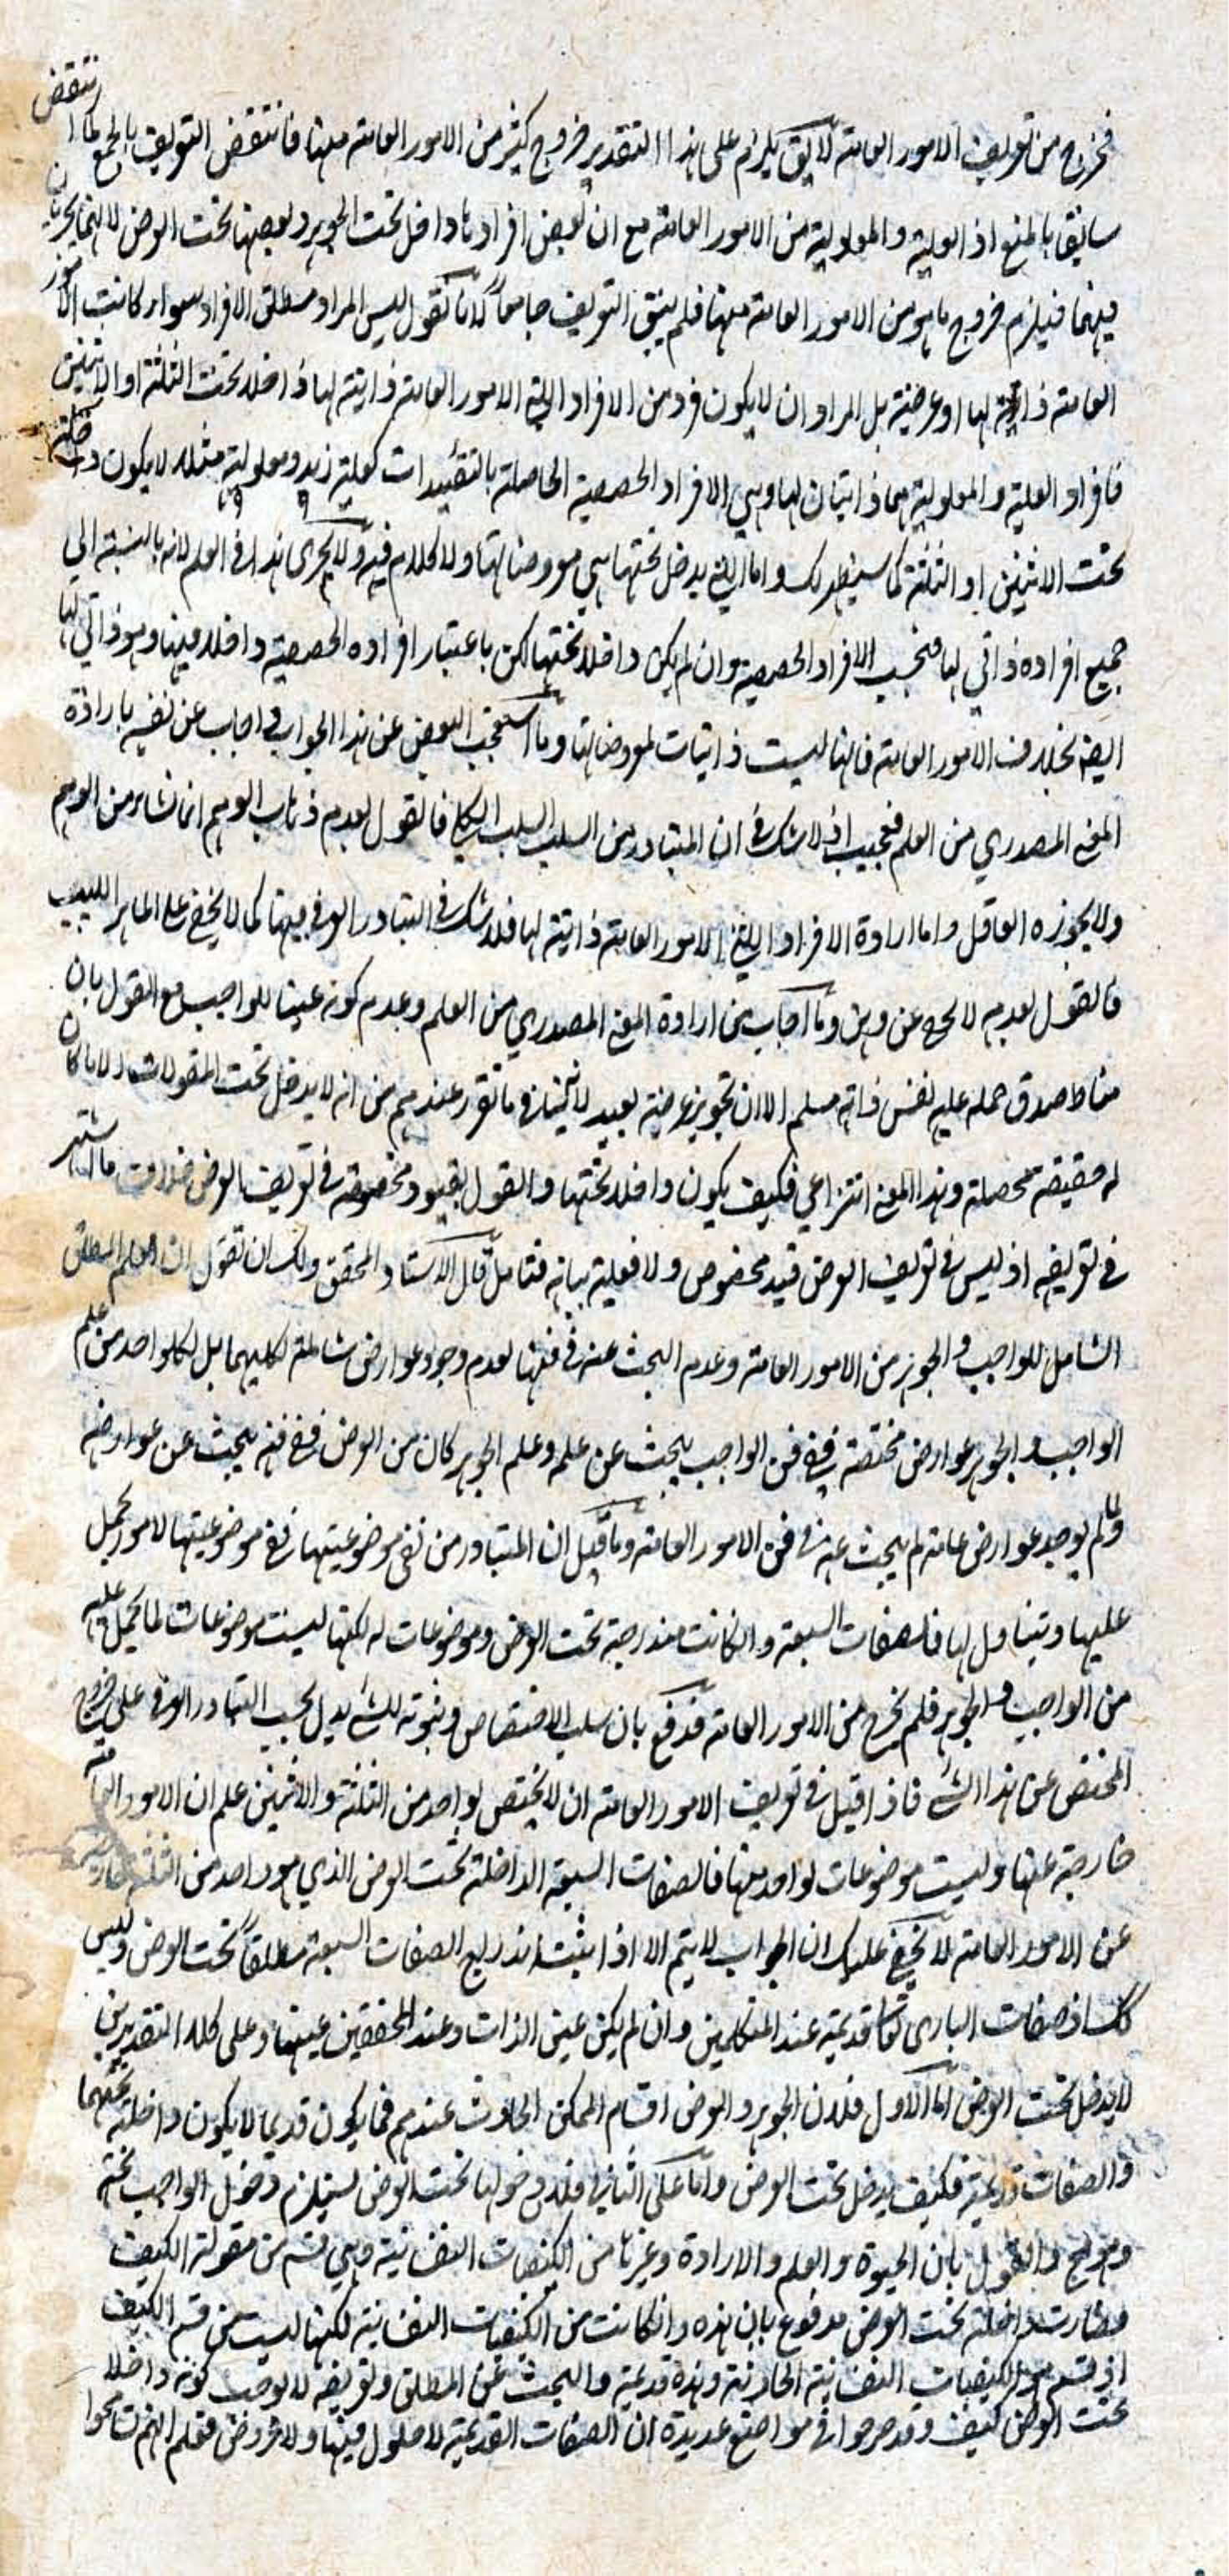 فخروج من تعريف الامور العامة لا يق يلزم على هذا التقدير خروج كثير من الامور العامة منها فانتقض التعريف بالجمع كما انتقض
سابق بالمنع اذ العلية والمعلولية من الامور العامة مع ان بعض افرادها داخل تحت الجوهر وبعضها تحت العرض لانهما يجريان
فيهما فيلزم خروج ما هو من الامور العامة منها فلم يبق التعريف جامعا لانا نقول ليس المراد مطلق الافراد سواء كانت الامور
العامة ذاتية لها او عرضية بل المراد ان لا يكون فرد من الافراد التي الامور العامة ذاتية لها داخلا تحت الثلثة او الاثنين
فافراد العلية والمعلولية هما ذاتيتان لها وهي الافراد الحصصية الحاصلة بالتقييدات كعلية زيد ومعلولية مثله لا يكون داخلة
تحت الاثنين او الثلثة كما سيظهر لك واما التي يدخل تحتها هي معروضاتها ولا كلام فيه ولا يجرى هذا في العلم لانه بالنسبة الى
جميع افراده ذاتي لها فبحسب الافراد الحصصية وان لم يكن داخلا تحتها لكن باعتبار افراده الحصصية داخلا فيها وهو ذاتي لها
ايضا بخلاف الامور العامة فانها ليست ذاتيات لمعروضاتها وما استعجب البعض عن هذا الجواب واجاب عن نفسه بارادة
المعنى المصدري من العلم فعجيب اذ لا شك في ان المتبادر من السلب السلب الكلي فالقول بعدم ذهاب الوهم انما نشاء من الوهم
ولا يجوزه العاقل واما ارادة الافراد التي الامور العامة ذاتية لها فلا شك في التبادر العرفي فيها كما لا يخفى على الماهر اللبيب
فالقول بعدم لا يخلو عن وهن وما اجاب من ارادة المعنى المصدري من العلم وعدم كونه عينا للواجب مع القول بان
مناط صدق حمله عليه نفس ذاته مسلم الا ان تجويز عرضية بعيد لا ما تقرر عندهم من انه لا يدخل تحت المقولات الا ما كان
له حقيقة محصلة وهذا المعنى انتزاعي فكيف يكون داخلا تحتها والقول بقيود مخصوصة في تعريف العرض خلاف ما اشتهر
في تعريفه اذ ليس في تعريف العرض قيد مخصوص ولا فعليه بيانه فتامل قال الاستاد المحقق ولك ان تقول ان العلم المطلق
الشامل للواجب والجوهر من الامور العامة وعدم البحث عنه في فنها لعدم وجود عوارض شاملة لكليهما بل لكل واحد من علم
الواجب والجوهر عوارض مختصة ففي فن الواجب يبحث عن علمه وعلم الجوهر كان من العرض ففي فنه يبحث عن عوارضه
ولما لم يوجد عوارض عامة لم يبحث عنه في فن الامور العامة وما قيل ان المتبادر من نفي موضوعيتها رفع موضوعيتها لامور يحمل
عليها ويتناول لها فالصفات السبعة وان كانت مندرجة تحت العرض وموضوعات له لكنها ليست موضوعات لما يحمل عليه
من الواجب والجوهر فلم يخرج من الامور العامة فدفع بان سلب الاختصاص وثبوته للشئ يدل بحسب التبادر العرفي على خروج
المختص عن هذا الشئ فاذا قيل في تعريف الامور العامة ان لا يختص بواحد من الثلثة والاثنين علم ان الامور العامة
خارجة عنها وليست موضوعات لواحد منها فالصفات السبعة الداخلة تحت العرض الذي هو واحد من الثلثة خارجة
عن الامور العامة لا يخفى عليك ان الجواب لا يتم الا اذا يثبت اندراج الصفات السبعة مطلقا تحت العرض وليس
كك اذ صفات البارى تعالى قديمة عند المتكلمين وان لم يكن عين الذات وعند المحققين عينها وعلى كلا التقديرين
لا يدخل تحت العرض اما الاول فلان الجوهر والعرض اقسام الممكن الحادث عندهم فما يكون قديما لا يكون داخلا تحتهما
والصفات قديمة فكيف يدخل تحت العرض واما على الثاني فلان دخولها تحت العرض يستلزم دخول الواجب تحته
وهو مح والقول بان الحيوة والعلم والارادة وغيرها من الكيفيات النفسانية وهي قسم من مقولة الكيف
فصارت داخلة تحت العرض مدفوع بان هذه وان كانت من الكيفيات النفسانية لكنها ليست من قسم الكيف
اذ قسم هو الكيفيات النفسانية الحادثة وهذه قديمة والبحث عن المطلق وتعريفه لا يوجب كونه داخلا
تحت العرض كيف وقد صرحوا في مواضع عديدة ان الصفات القديمة لا حلول فيها ولا عروض فعلم انهم تسامحوا